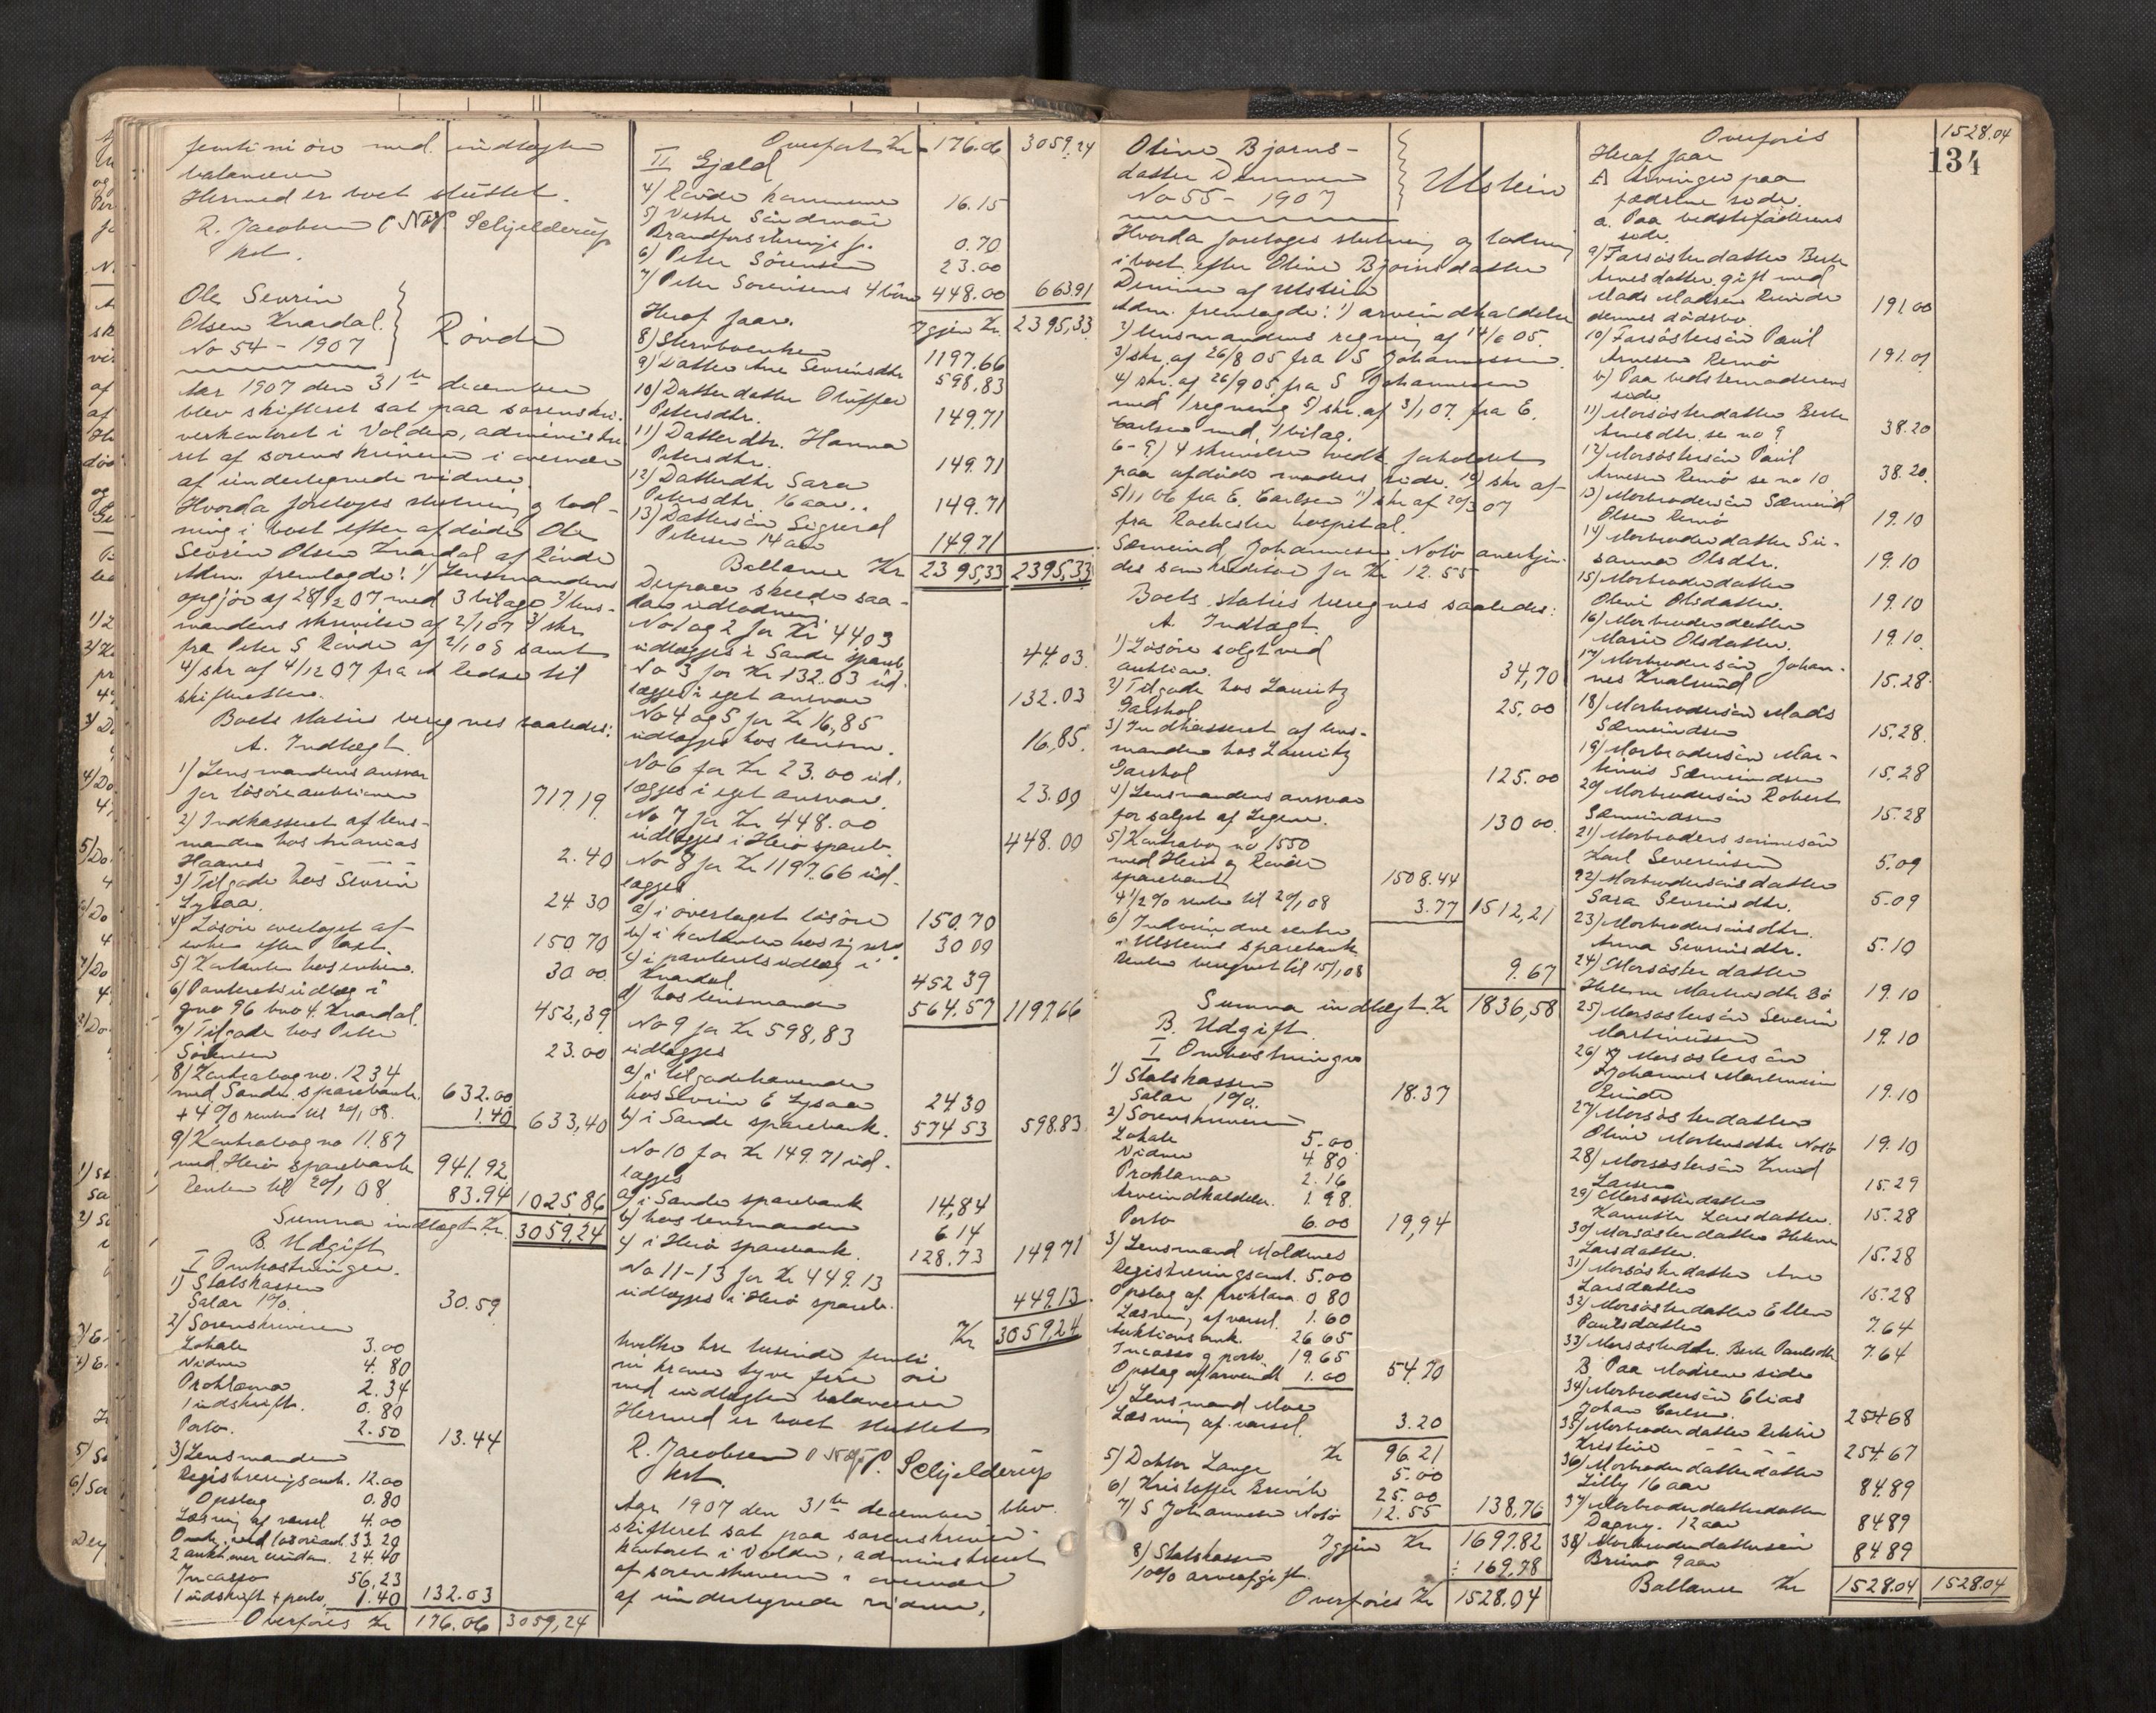 femti ni öre med indtægten
balancerer
Hermed er boet sluttet.
R. Jacobsen Schjelderup
kst.
Ole Sevrin
Olsen Kvardal.
No 54 - 1907
Rövde
Aar 1907 den 31te december
blev skifteret sat paa sorenskri-
verkontoret i Volden, administre
ret af sorenskriveren i overvær
af undertegnede vidner.
Hvorda foretoges slutning og lod-
ning i boet efter afdöde Ole
Sevrin Olsen Kvardal af Rövde
Adm. fremlagde: 1) Lensmandens
opgjör af 28/12 07 med 3 bilage 2) lens-
mandens skrivelse af 2/1 07 3) skr
fra Peter S Rövde af 2/1 08 samt
4) skr af 4/12 07 fra
skifteretten.
Boets status beregnes saaledes:
A. Indtægt.
1) Lensmandens ansvar
for lösöreauktionen 717.19
2) Indkasseret af lens-
manden hos Ananias
Haanes 2.40
3) Tilgode hos Sevrin
Lysaa. 24.30
4) Lösöre overtaget af
enken efter taxt. 150 70
5) Kontanter hos enken. 30 00
6) Panteretsudlæg i
gno 96 bno 4. Kvardal. 452,39
7) Tilgode hos Peter
Sörensen 23.00
8) Kontrabog no. 1234
med Sande sparebank. 632.00
+ 4% renter til 20/1 08. 1.40 633,40
9) Kontrabog no 1187
med Herö sparebank 941.92
Renter til 20/1 08 83.94 1025,86
Summa indtægt Kr. 3059,24
B. Udgift
I Omkostninger.
1) Statskassen
Salær 1%. 30.59
2) Sorenskriveren
Lokale 3.00
Vidner 4.80
Proklama 2.34
1 indskrift. 0.80
Porto. 2.50 13.44
3) Lensmanden
Registreringsomk. 12.00
Opslag 0.80
Læsning af varsel 4.00
Omk. ved lösöreaukt. 33.20
24.40
Incasso 56,23
1 indskrift + porto, 1.40 132.03
Overföres Kr 176.06 3059,24
Overfört Kr 176.06 3059.24
II Gjæld
4) Rövde kommune 16.15
5) Vestre Söndmör
Brandforsikrings f. 0.70
6) Peter Sörensen 23.00
7) Peter Sorensens 4 börn 448.00 663.91
Igjen Kr. 2395,33
Heraf faar.
8) Sterboenken 1197.66
9) Datter Ane Sevrinsdtr 598,83
10) Datterdatter Oluffa
Petersdtr. 149.71
11) Datterdtr. Hanna
Petersdtr. 149.71
12) Datterdtr Sara
Petersdtr. 16 aar.. 149.71
13) Dattersön Sigurd
Petersen 14 aar 149.71
Ballance Kr 2395,33 2395,33
Derpaa skeede saa-
dan udlodning
No 1 og 2 for Kr 44 03
udlægges i Sande spareb. 44.03
No 3 for Kr 132.03 ud-
lægges i eget ansvar 132.03
No 4 og 5 for Kr 16,85
udlægges hos lensm. 16,85.
No 6 for Kr 23.00 ud-
lægges i eget ansvar. 23.00
No 7 for Kr 448.00
udlægges i Herö spareb. 448.00
No 8 for Kr 1197.66 ud-
lægges
a) i overtaget lösöre 150.70
b) i kontanter hos sig selv 30 00
c) i panteretsudlæg i
Kvardal. 452 39
d) hos lensmanden 564.57 1197.66
No 9 for Kr 598,83
udlægges
a) i tilgodehavende
hos Sevrin E Lysaa 24.30
b) i Sande sparebank. 574 53 598.83.
No 10 for Kr 149.71 ud-
lægges
a) i Sande sparebank 14,84
b) hos lensmanden 6 14
c) i Herö sparebank. 128.73 149.71
No 11-13 for Kr 449.13
udlægges i Herö spareb. 449.13
Kr 3059,24
hvilke tre tusinde femti
ni kroner tyve fire öre
med indtægten balancerer
Hermed er boet sluttet
R. Jacobsen Schjelderup
kst.
Aar 1907 den 31te december blev
skifteret sat paa sorenskriver-
kontoret i Volden, administreret
af sorenskriveren i overvær
af undertegnede vidner,
Oline Bjorns-
datter Dimmen
No 55 - 1907
Ulstein
Hvorda foretoges slutning og lodning
i boet efter Oline Bjornsdatter
Dimmen af Ulstein
Adm. fremlagde: 1) arveindkaldelse
2) lensmandens regning af 14/6 05.
3) skr. af 26/8 05 fra S Johannessen.
4) skr. af 26/9 05 fra S Johannessen
med 1 regning 5) skr. af 3/1 07. fra E.
Carlsen med 1 bilag.
6-9) 4 skrivelser vedk. forholdet
paa afdöde moders side. 10) skr af
5/11 06 fra E. Carlsen 11) skr af 20/3 07
fra Rochester hospital.
Sæmund Johannesen Notö anerkjen-
des som kreditor for Kr 12.55
Boets status beregnes saaledes:
A. Indtægt
1) Lösöre solgt ved
auktion. 34,70
2) Tilgode hos Lauritz
Garshol 25.00
3) Indkasseret af lens-
manden hos Lauritz
Garshol 125.00
4) Lensmandens ansvar
for salget af 130 00.
5) Kontrabog no 1550
med Herö og Rövde
sparebank 1508.44
4 1/2 % renter til 20/1 08 3.77 1512,21
6) Indvundne renter
i Ulsteins sparebank
Renter beregnet til 15/1 08 9.67
Summa indtægt Kr 1836,58
B. Udgift
I Omkostninger
1) Statskassen
Salær 1%. 18.37
2) Sorenskriveren
Lokale 5.00
Vidner 4.80
Proklama 2.16
Arveindkaldelse. 1.98.
Porto 6.00 19,94
3) Lensmand Moldnes
Registreringsomk. 5.00
Opslag af proklama 0 80
Læsning af varsel. 1.60
Auktionsomk. 26 65
Incasso og porto 19.65
Opslag af arveindk 1.00 54.70
4) Lensmand Moe
Læsning af varsel. 3.20
Kr 96.21
5) Doktor Lange 5.00
6) Kristoffer Brevik 25.00
7) S Johannesen Notö 12.55 138,76
Igjen Kr 1697.82
8) Statskassen
10% arveafgift. ÷ 169.78
Overföres Kr 1528.04
Overföres 1528.04
134
Heraf faar
A Arvinger paa
fædrene side.
a. Paa bedstefaderens
side.
9) Farsösterdatter Berte
Arnesdatter gift med
Mads Madsen Remöe
dennes dödsbo. 191 00
10) Farsöstersön Paul
Arnesen Remö 191.01
b) Paa bedstemoderens
side.
11) Morsösterdatter Berte
Arnesdtr. se no 9 38.20
12) Morsöstersön Paul
Arnesen Remö se no 10 38.20.
13) Morbrodersön Sæmund
Olsen Remö 19.10
14) Morbroderdatter Su-
sanna Olsdtr. 19.10
15) Morbroderdatter
Oline Olsdatter. 19.10
16) Morbroderdatter
Marie Olsdatter. 19.10.
17) Morbrodersön Johan-
nes Kvalsund 15.28
18) Morbrodersön Mads
Sæmundsen 15.28.
19) Morbrodersön Mar-
tinus Sæmundsen 15.28
20) Morbrodersön Robert
Sæmundsen 15.28
21) Morbroders sönnesön
Karl Severinsen 5.09
22) Morbrodersöns datter
Sara Sevrinsdtr. 5.09
23) Morbrodersönsdtr.
Anna Sevrinsdtr. 5.10
24) Morsösterdatter
Helene Martinsdtr Bö 19.10
25) Morsöstersön Severin
Martinussen 19.10
26) Morsöstersön
Johannes Martinusen
Runde 19.10
27) Morsösterdatter
Oline Martinsdtr Notö 19.10
28) Morsöstersön Knud
Larsen 15.29
29) Morsösterdatter
Larsdatter. 15.28
30) Morsösterdatter Helene
Larsdatter. 15.28
31) Morsösterdatter Ane
Larsdatter 15.28
32) Morsösterdatter Ellen
Paulsdatter 7.64
33) Morsösterdtr. Berte Paulsdtr 7.64
B Paa Modrene side
34) Morbrodersön Elias
Johan Carlsen. 254 68
35) Morbroderdatter
Kristine 254.67
36) Morbroderdatterdatter
Lilly 16 aar 84.89
37) Morbroderdatterdatter
Dagny. 12 aar 84 89
38) Morbroderdattersön
Bruno 9 aar 84 89
Ballance Kr 1528.04 1528.04